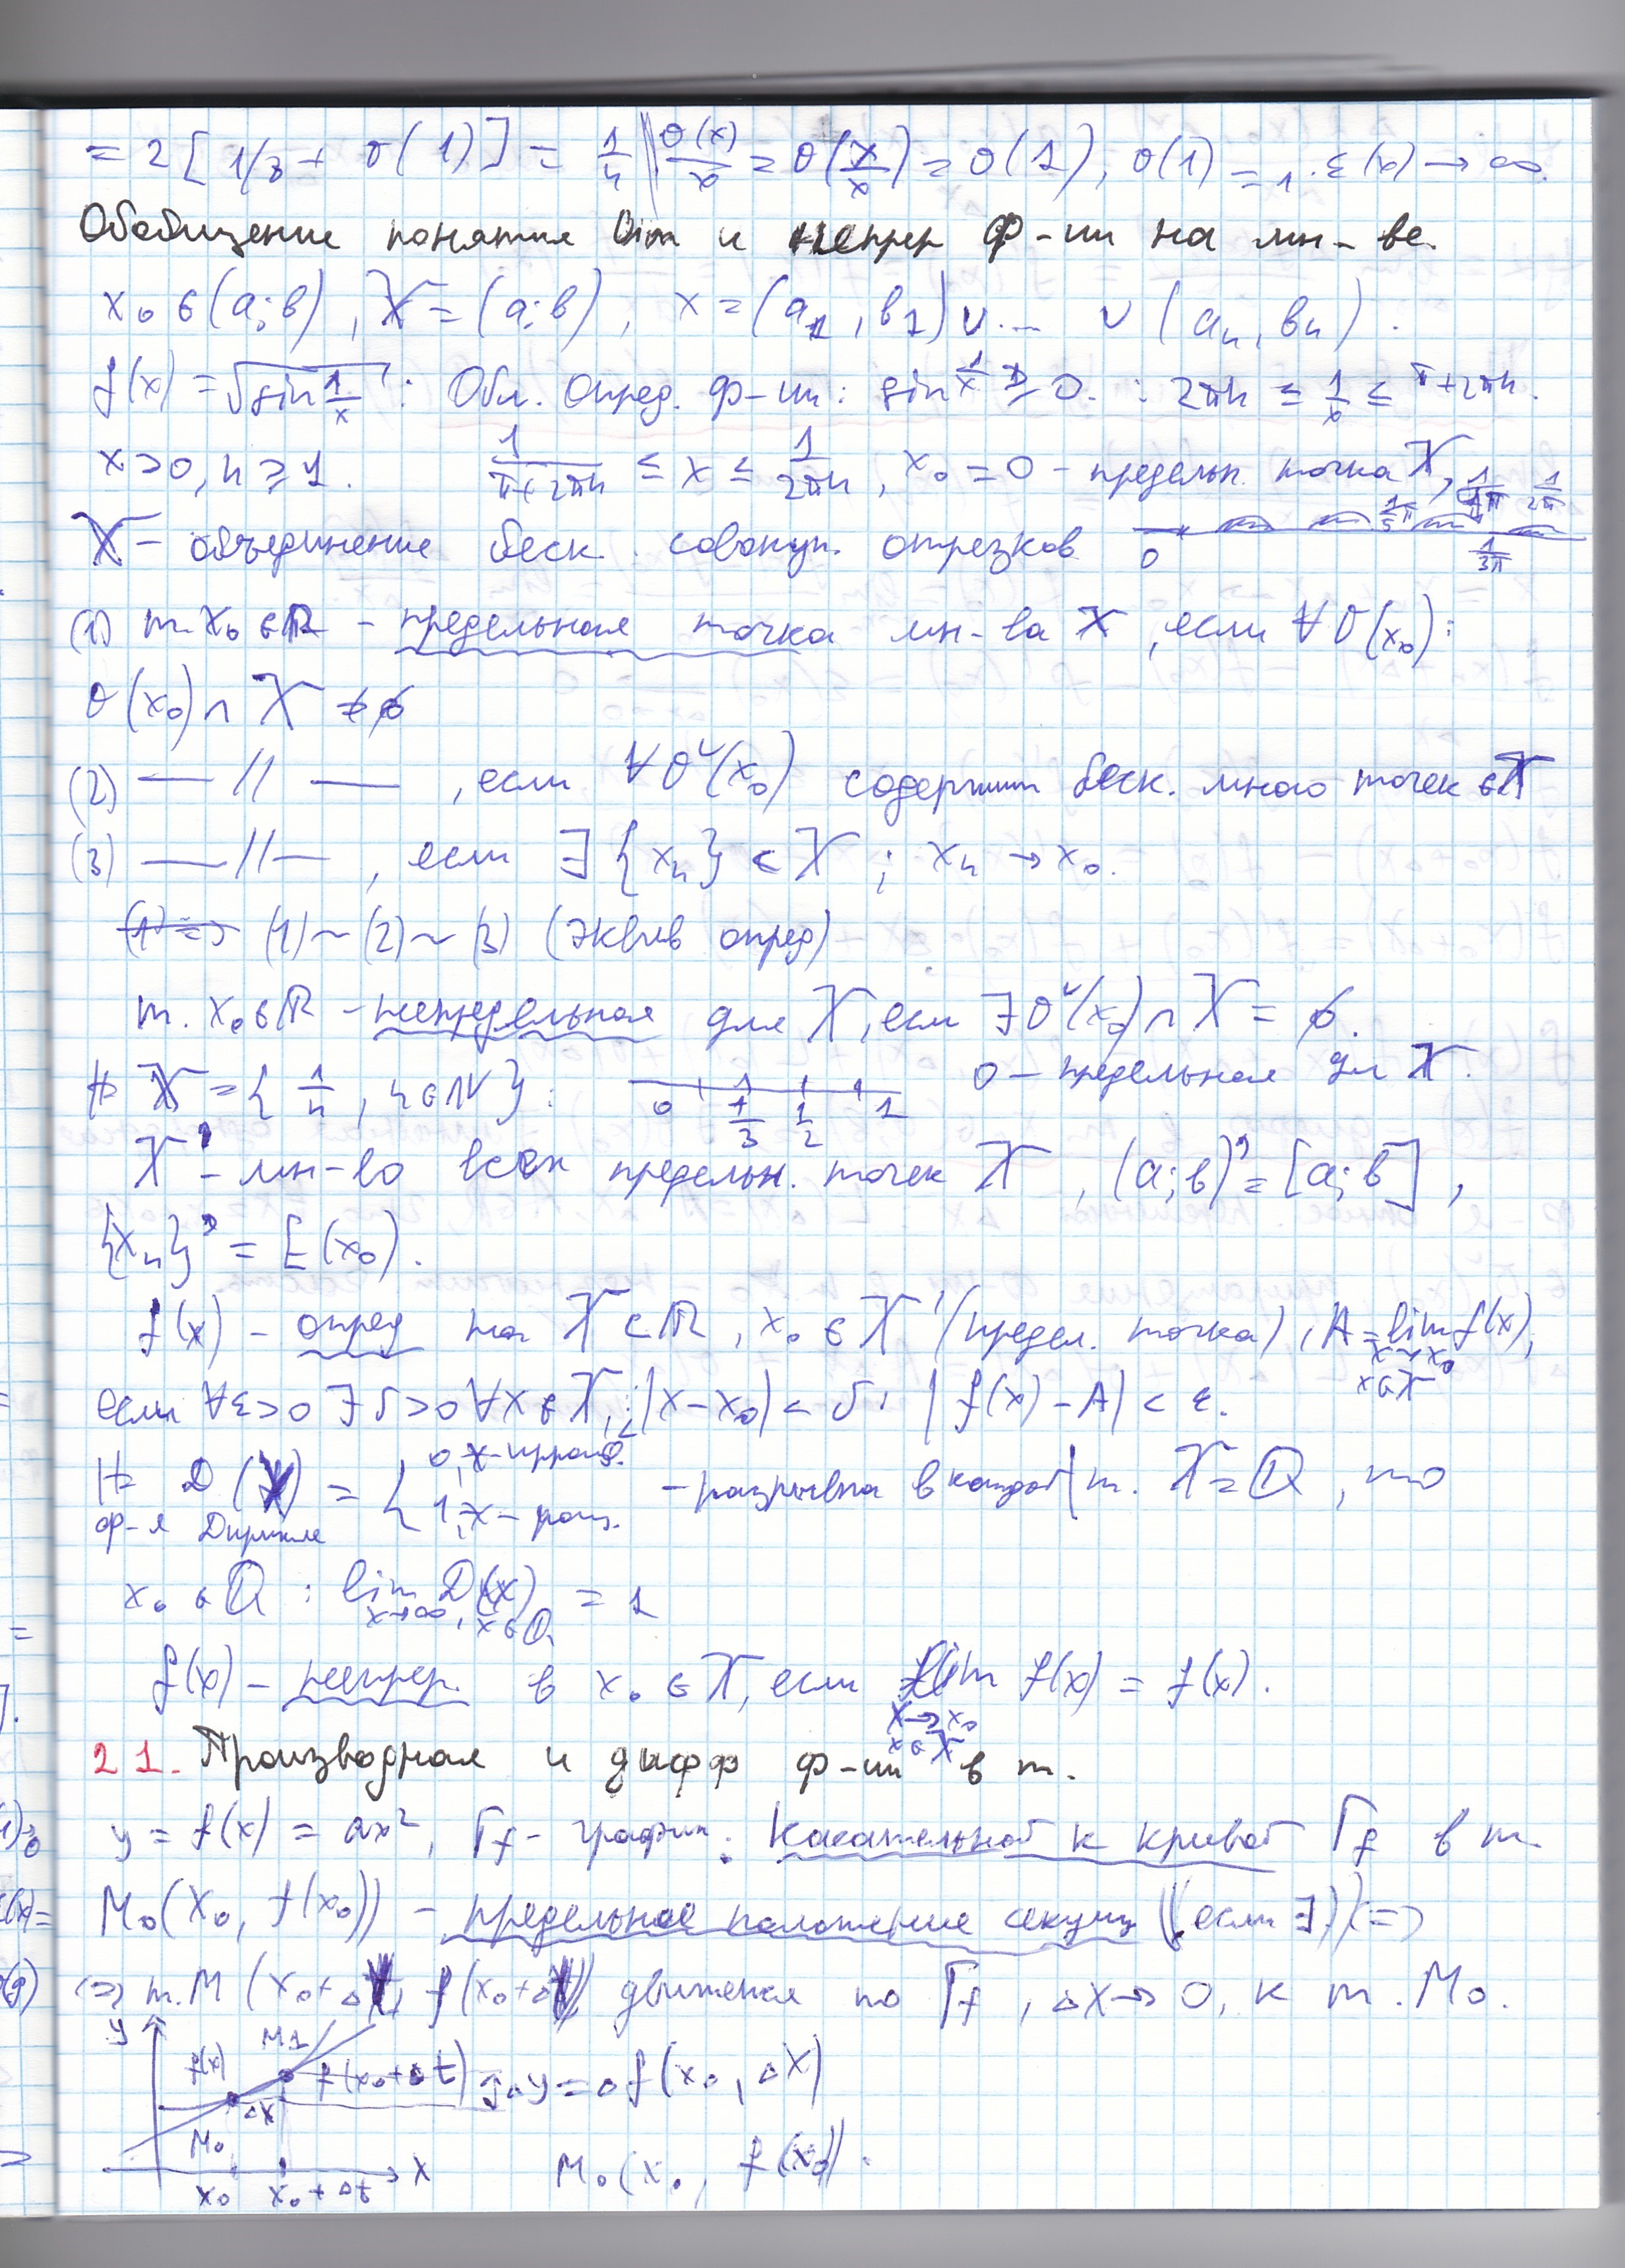 = 2 [ 1/3 + o(1) ] = 1/4 || o(x)/x = o(x/x) = o(1), o(1) = 1·ε(x) → ∞.
Обобщение понятия lim и непрер ф-ии на мн-ве.
x₀ ∈ (a; b), X = (a; b), x = (a₁, b₁) ∪ ... ∪ (aₙ, bₙ).
f(x) = √(sin 1/x) : Обл. опред. ф-ии: sin 1/x ≥ 0. : 2πn ≤ 1/x ≤ π+2πn.
x > 0, n ≥ 1. 1/(π+2πn) ≤ x ≤ 1/(2πn), x₀ = 0 – предельн. точка X, 1/2π
X – объединение беск. совокуп. отрезков 0 1/5π 1/3π
(1) т. x₀ ∈ ℝ – предельная точка мн-ва X, если ∀ O(x₀):
O(x₀) ∩ X ≠ ∅
(2) — // — , если ∀ O(x₀) содержит беск. много точек ∈ X
(3) — // — , если ∃ {xₙ} ⊂ X ; xₙ → x₀.
(1) ~ (2) ~ (3) (эквив опред)
т. x₀ ∈ ℝ – непредельная для X, если ∃ O(x₀) ∩ X = ∅.
H> X = { 1/n, n ∈ N } : 0 1/3 1/2 1 0 – предельная для X.
X' – мн-во всех предельн. точек X, (a; b)' = [a; b],
{xₙ}' = E(x₀).
f(x) – опред на X ⊂ ℝ, x₀ ∈ X' (предел. точка), A = lim f(x), x→x₀ x∈X
если ∀ε>0 ∃ δ>0 ∀x ∈ X, : |x – x₀| < δ : |f(x) – A| < ε.
H> D(x) = { 0, x – иррац. 1, x – рац. – разрывна в каждой т. X = ℚ, то
ф-я Дирихле
x₀ ∈ ℚ : lim D(x) = 1 x→∞, x∈ℚ
f(x) – непрер. в x₀ ∈ X, если lim f(x) = f(x). x→x₀ x∈X
21. Производная и дифф ф-ии в т.
y = f(x) = ax², Γf – график. Касательной к кривой Γf в т.
M₀(x₀, f(x₀)) – предельное положение секущ (если ∃) (=>
<=> т. M (x₀ + Δx, f(x₀ + Δx)) движения по Γf, Δx → 0, к т. M₀.
y M1
f(x) f(x₀ + Δt) } Δy = Δf(x₀, Δx)
Δx
M₀ x M₀(x₀, f(x₀)).
x₀ x₀ + Δt